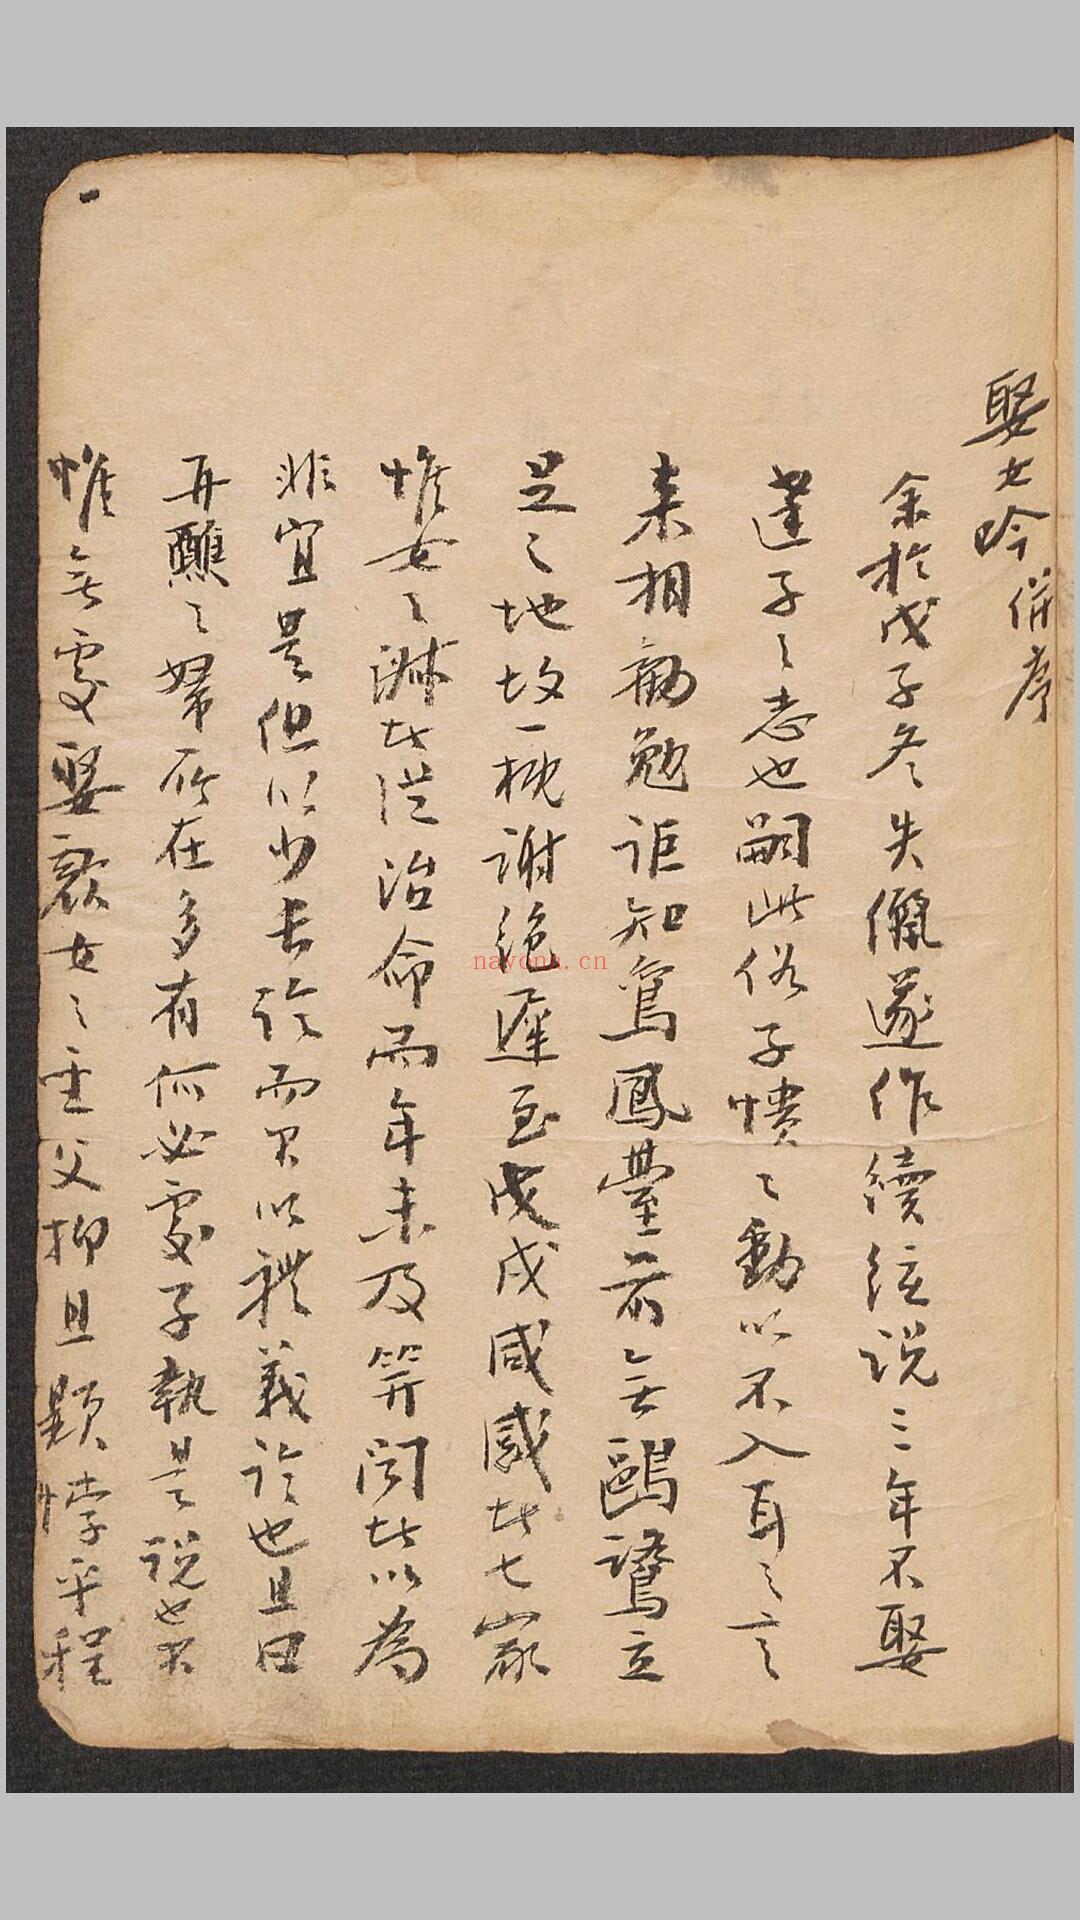 娶女吟併序
余於戊子冬失儷遂作續絃說三年不娶
達子之志也嗣此俗子憒々動以不入耳之言
来相勸勉詎知鸞鳳臺前無鷗鷺立
足之地故一概謝絕遲至戊戌咸感此七家
惟女之淋此從治命而年未及笄聞此以為
非宜是但以少長論而不以禮義論也且曰
再醮之婦所在多有何必處子執是說也不
惟無處娶寡女之重父抑且顯悖乎程
nayona.cn